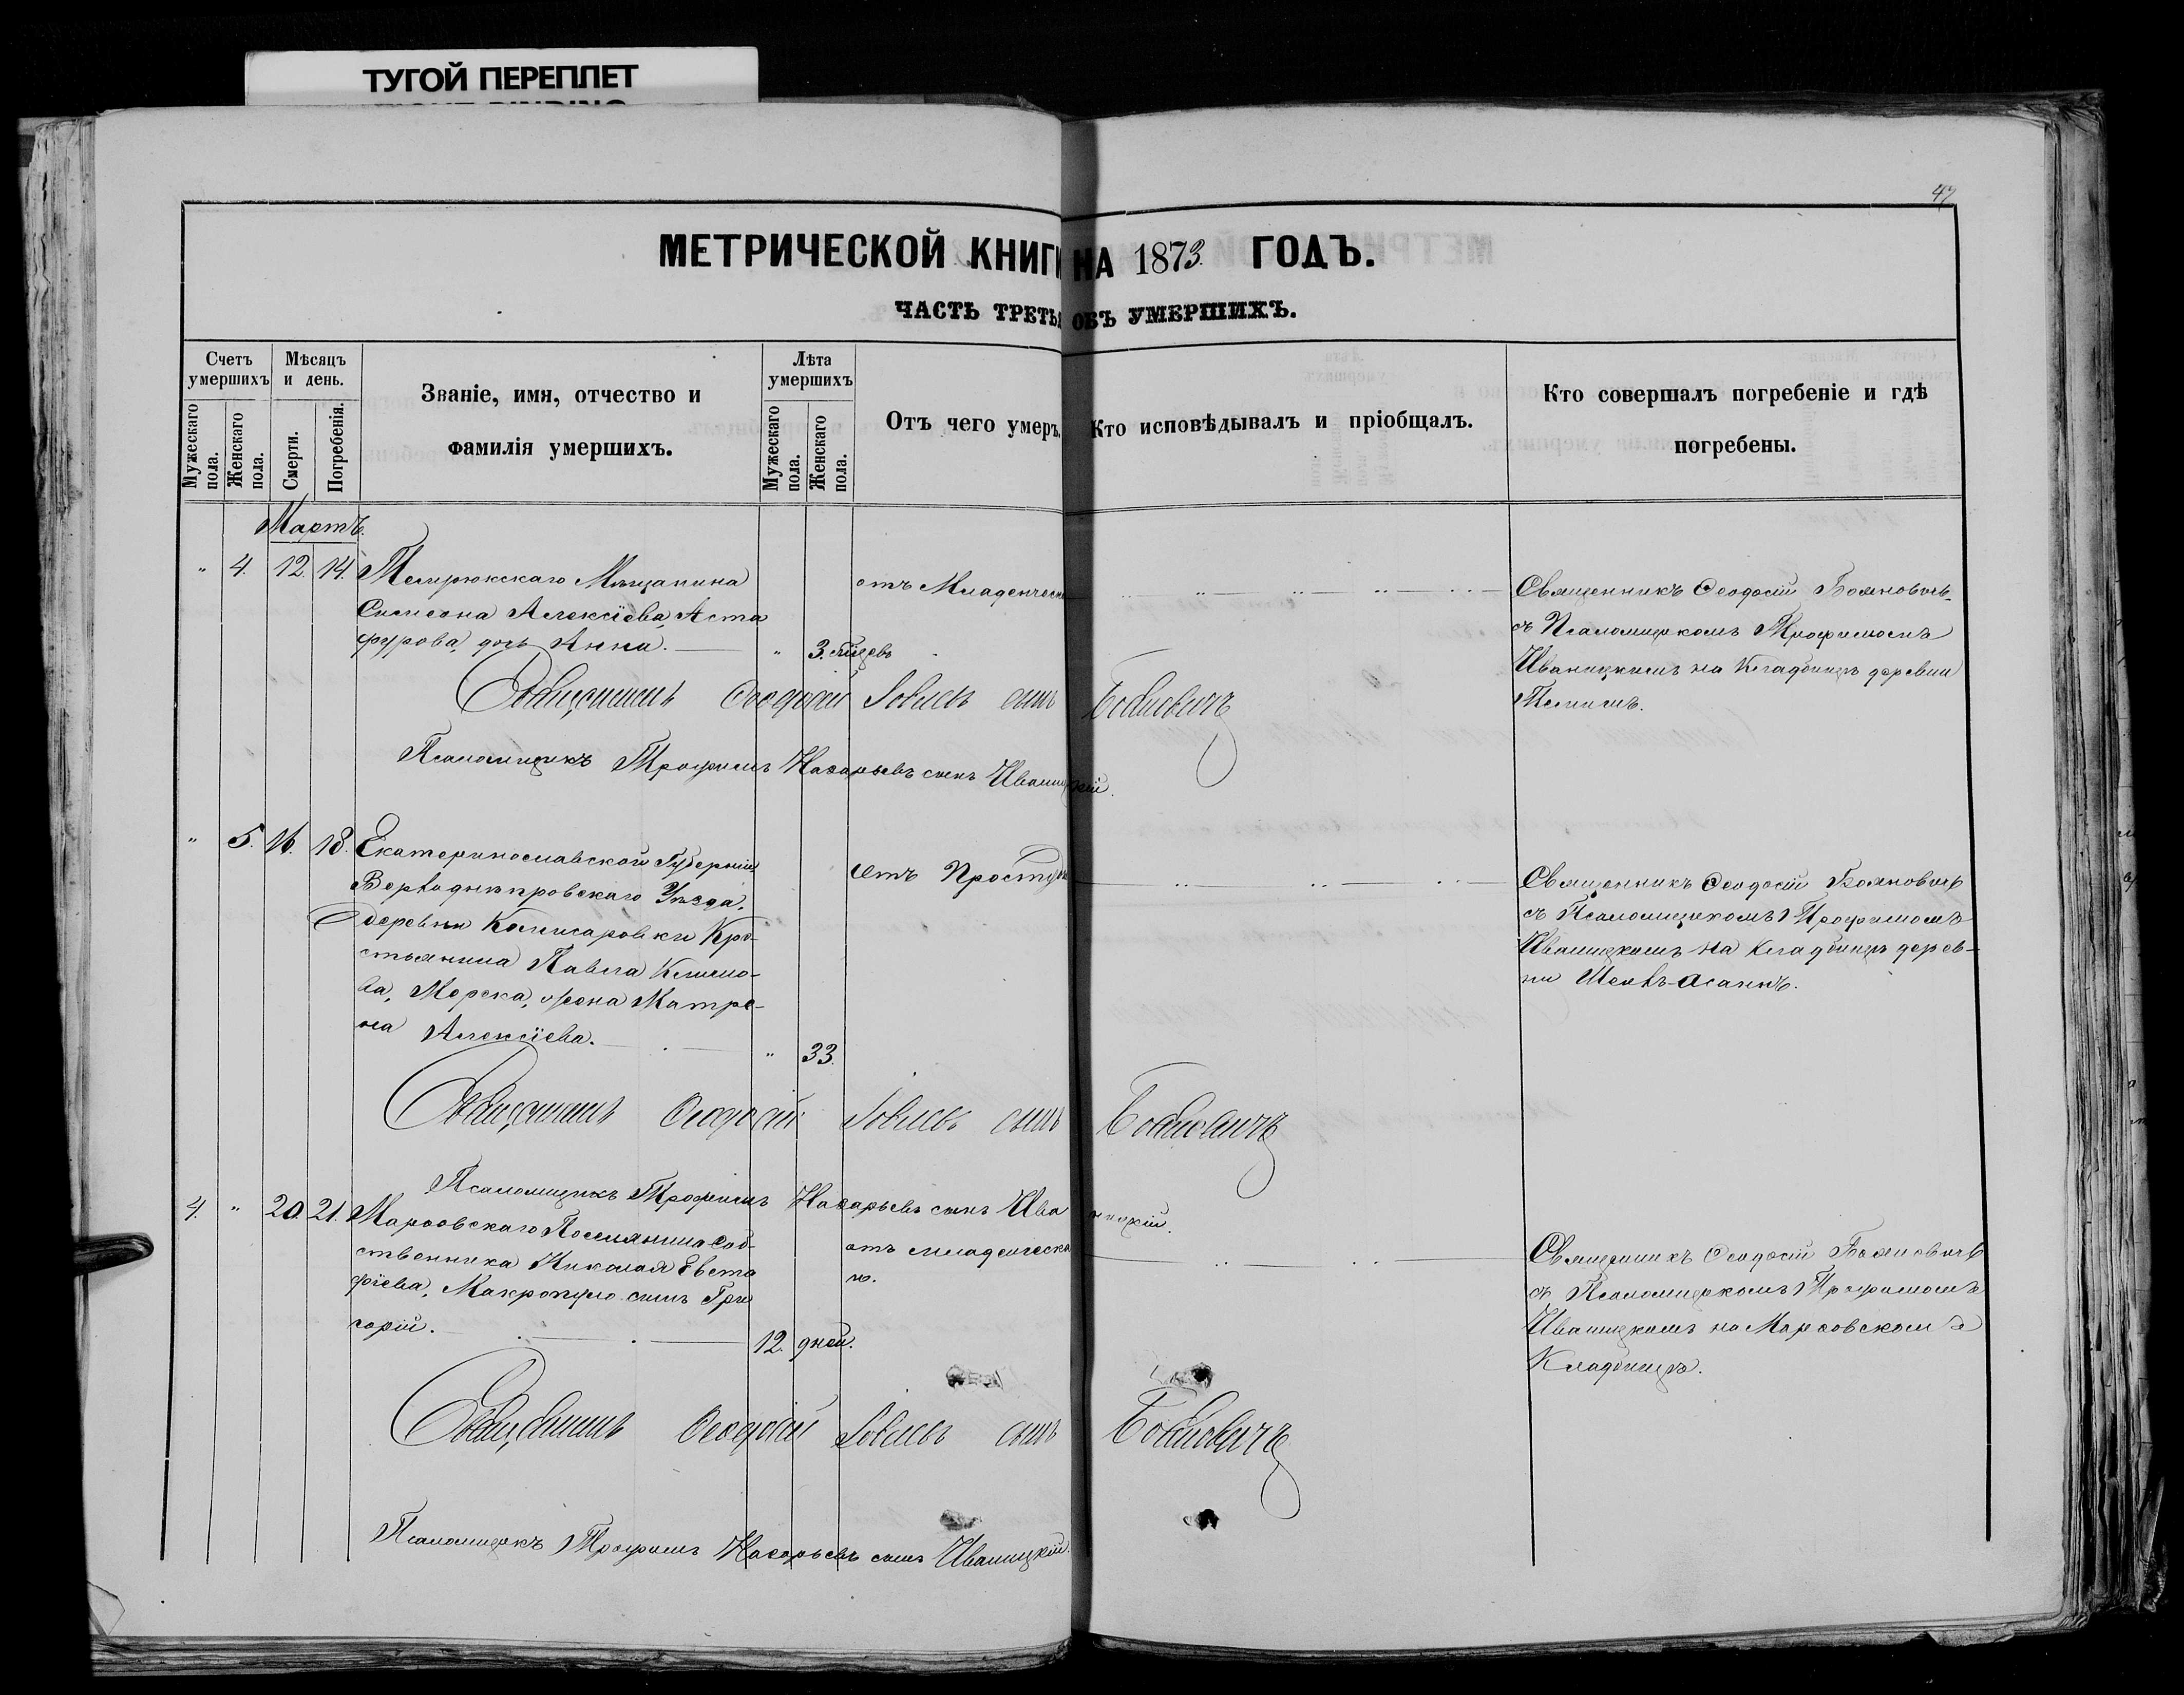 ТУГОЙ ПЕРЕПЛЕТ
47
МЕТРИЧЕСКОЙ КНИГИ НА 1873 ГОДЪ.
ЧАСТЬ ТРЕТЬЯ ОБЪ УМЕРШИХЪ.
Счетъ умершихъ
Мужескаго пола.
Женскаго пола.
Мѣсяцъ и день.
Смерти.
Погребенія.
Званіе, имя, отчество и фамилія умершихъ.
Лѣта умершихъ
Мужескаго пола.
Женскаго пола.
Отъ чего умеръ.
Кто исповѣдывалъ и пріобщалъ.
Кто совершалъ погребеніе и гдѣ погребены.
Мартъ.
" 4. 12. 14. Темрюкскаго Мѣщанина
Симеона Алексіева Аста
фурова, дочь Анна. " 3.
отъ Младенческ
Священникъ Ѳеодосій Бояновичь
съ Псаломщикомъ Трофимомъ
Иваницкимъ на Кладбищѣ деревни
Священникъ Ѳеодосій Іовлевъ сынъ Бояновичъ
Псаломщикъ Трофимъ Назарьевъ сынъ Иваницкій.
" 5. 16. 18. Екатеринославской Губерніи
Верходнѣпровскаго Уѣзда,
деревни Комисаровки Кре-
стьянина Павла Климо-
ва,Морока, жена Матре-
на Алексіева. " 33.
Отъ Простуд
Священникъ Ѳеодосій Бояновичь
съ Псаломщикомъ Трофимомъ
Иваницкимъ на Кладбищѣ дерев-
ни Шеихъ-Асанъ.
Священникъ Ѳеодосій Іовлевъ сынъ Бояновичъ
Псаломщикъ Трофимъ Назарьевъ сынъ Иваницкій.
4. " 20. 21. Марфовскаго Поселянина Соб-
ственника Николая Евста
фіева, Макропуло сынъ Гри
горій. 12. дней.
отъ младенческа
го.
Священникъ Ѳеодосій Бояновичь
съ Псаломщикомъ Трофимомъ
Иваницкимъ на Марфовскомъ
Кладбищѣ.
Священникъ Ѳеодосій Іовлевъ сынъ Бояновичъ
Псаломщикъ Трофимъ Назарьевъ сынъ Иваницкій.